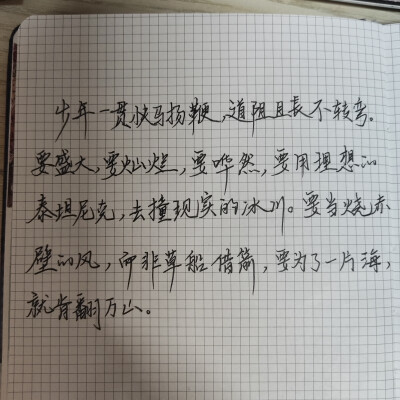 少年一贯快马扬鞭,道阻且長不转弯。
要盛大,要灿烂,要哗然,要用理想的
泰坦尼克,去撞现实的冰川。要当烧赤
壁的风,而非草船借箭,要为了一片海,
就肯翻万山。